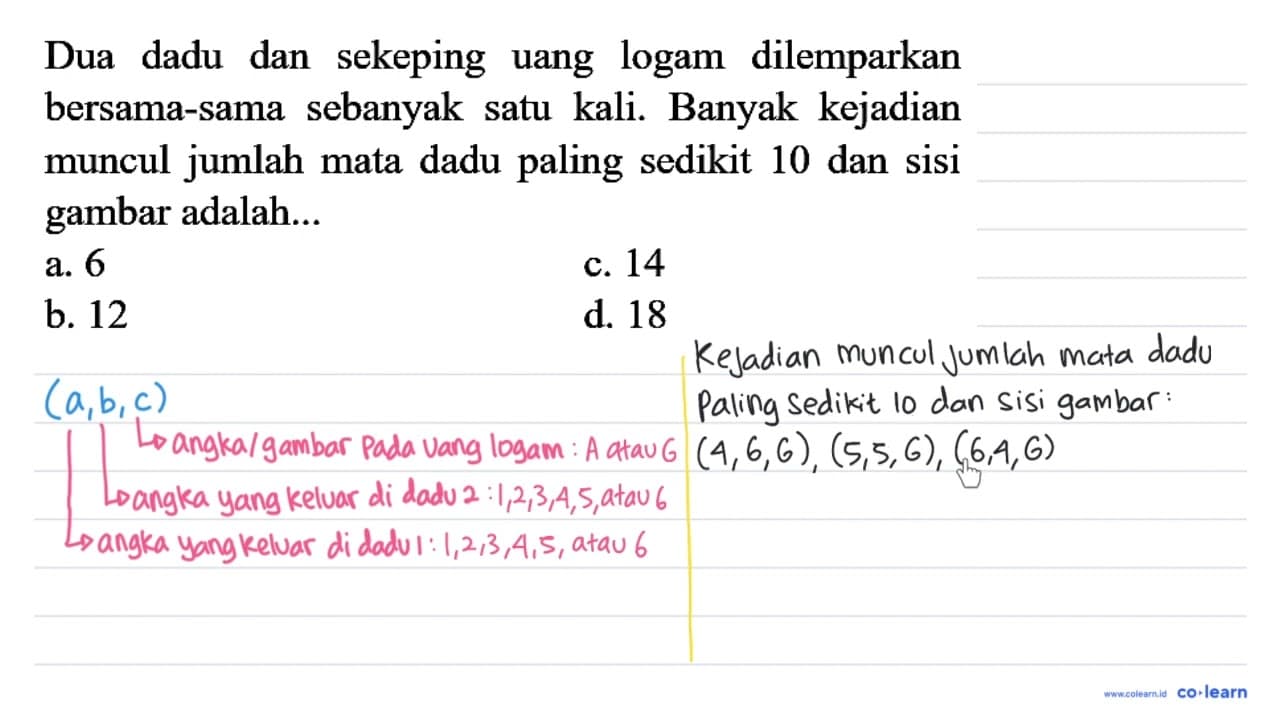 Dua dadu dan sekeping uang logam dilemparkan
bersama-sama sebanyak satu kali. Banyak kejadian
muncul jumlah mata dadu paling sedikit 10 dan sisi
gambar adalah...
a. 6
c. 14
b. 12
d. 18
(a,b,c)
angka/gambar Pada Uang logam : A atau G
angka yang keluar di dadu 2 : 1,2,3,4,5,atau 6
angka yang keluar di dadu 1 : 1,2,3,4,5, atau 6
Kejadian muncul jumlah mata dadu
Paling Sedikit 10 dan sisi gambar :
(4,6,G), (5,5,G), (6,4,G)
www.colearn.id co·learn